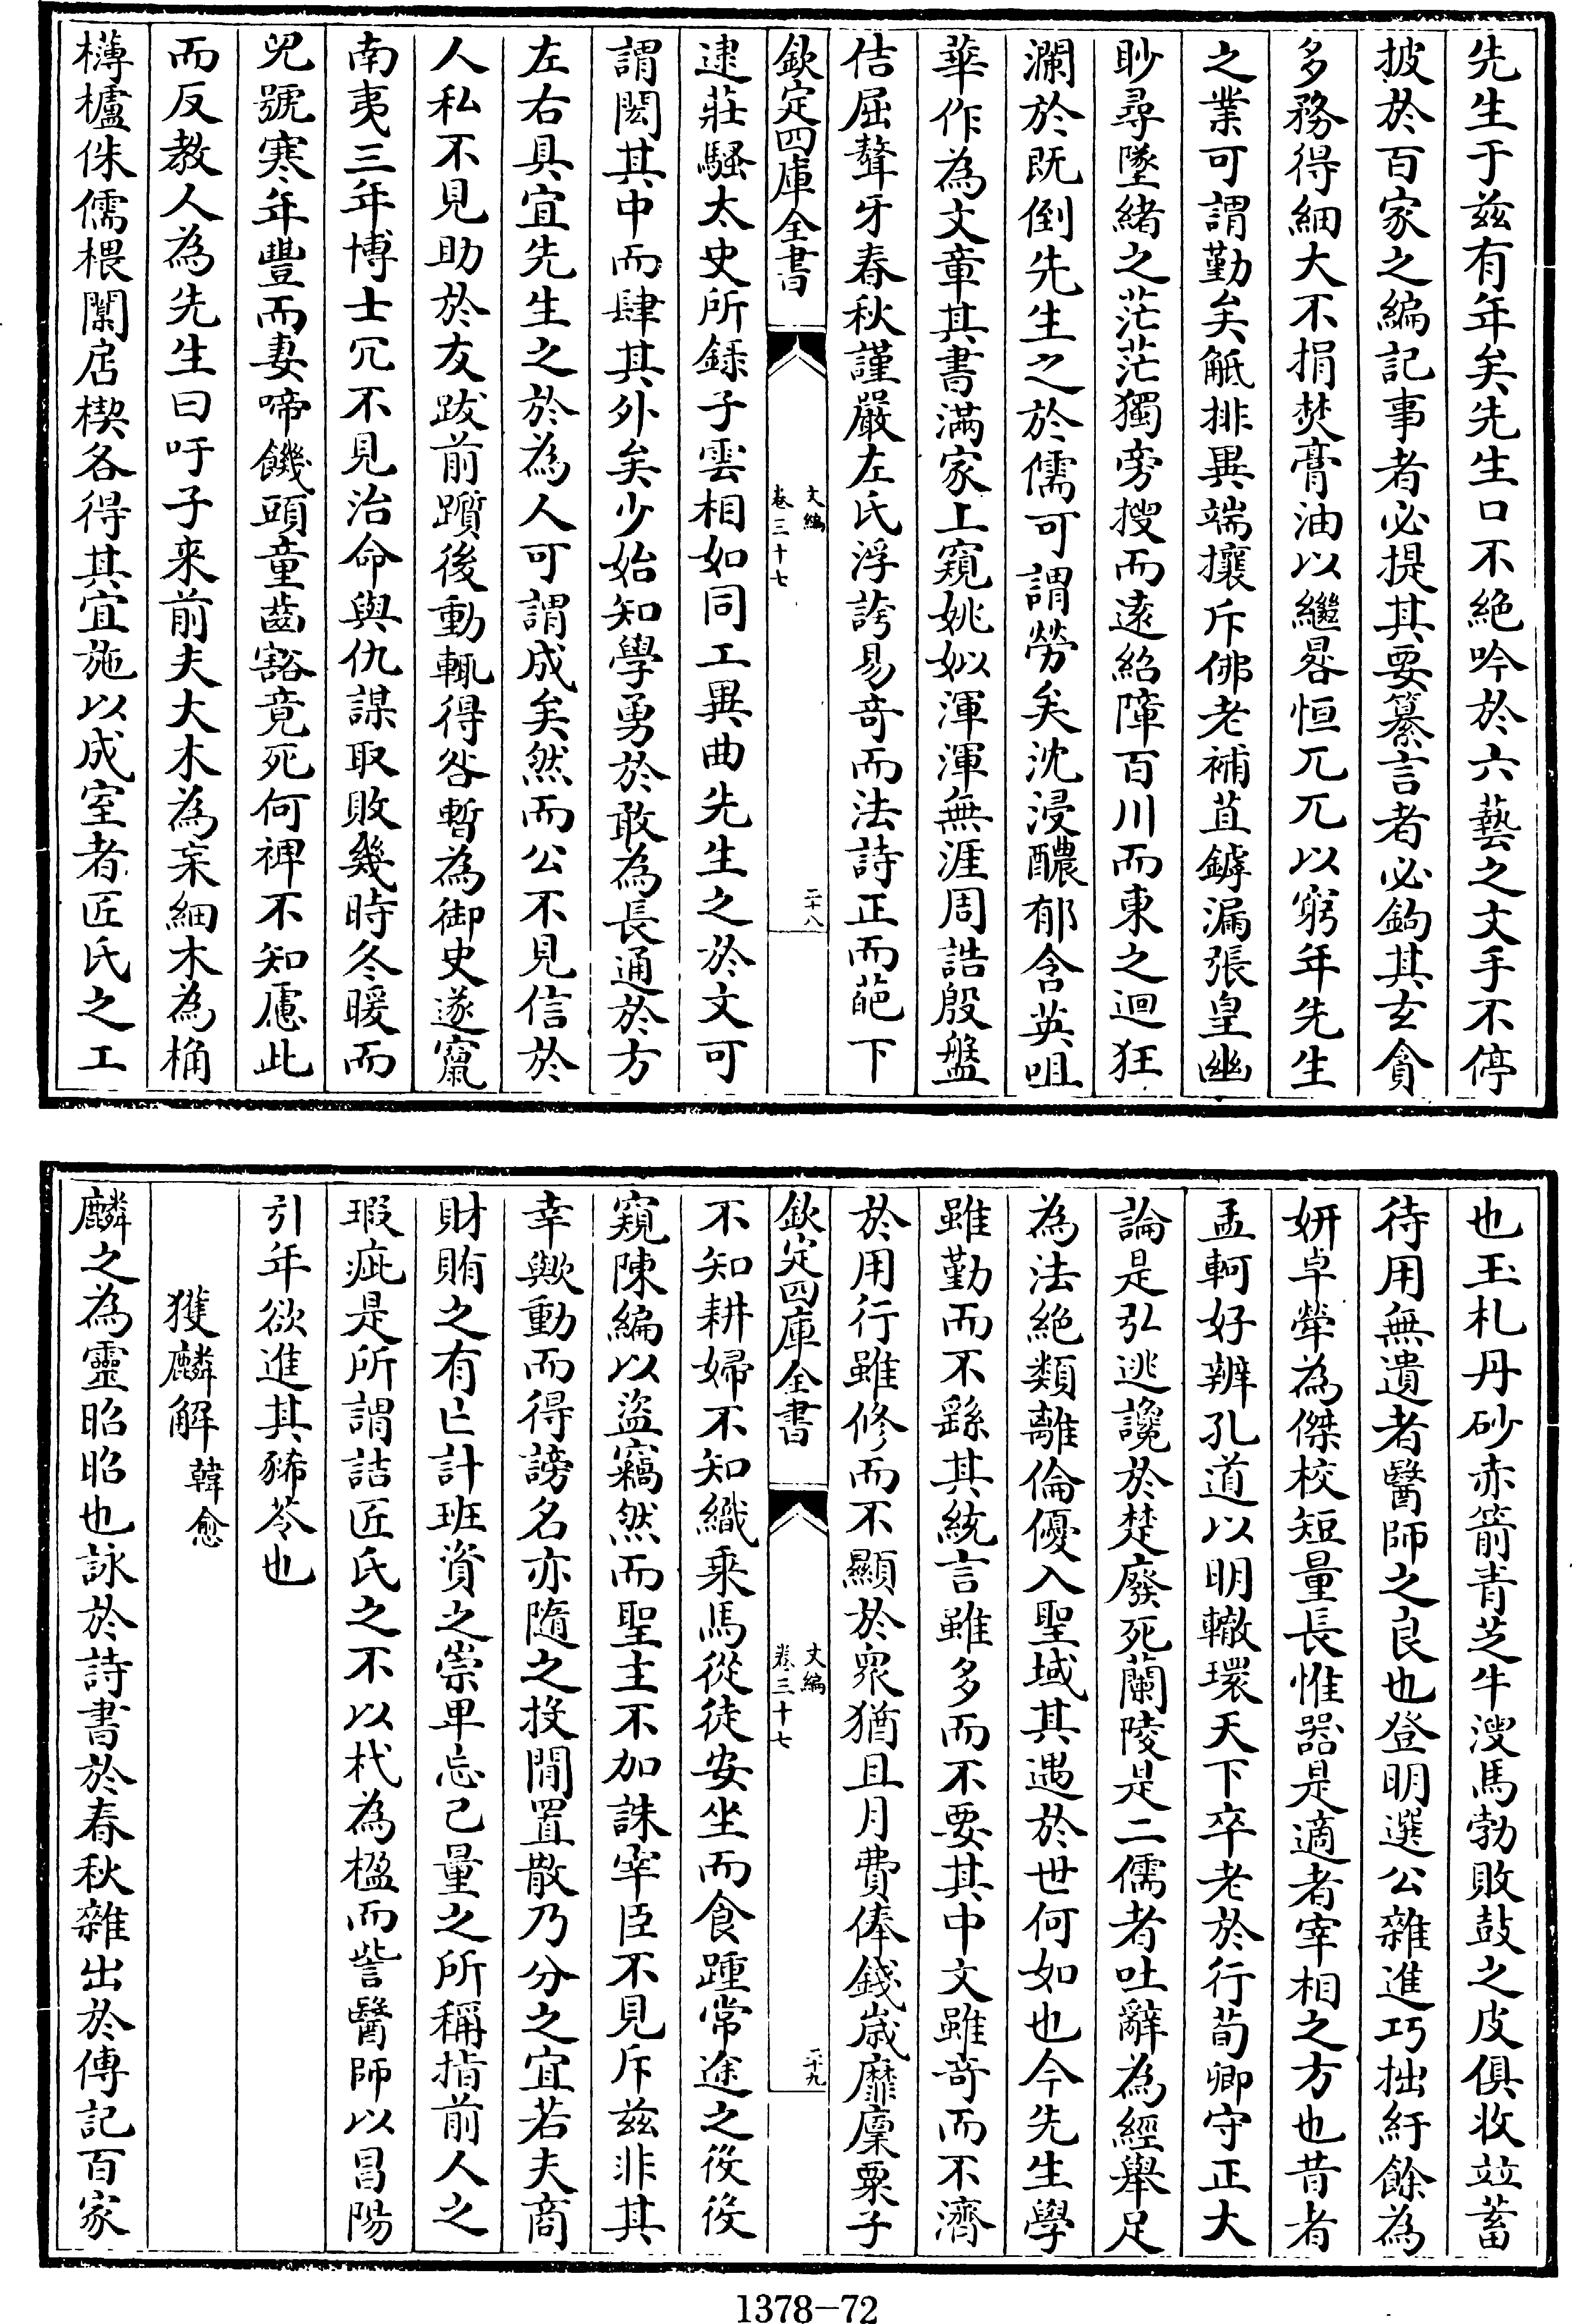 先生于兹有年矣先生口不絶吟於六藝之文手不停
披於百家之編記事者必提其要纂言者必鉤其玄貪
多務得細大不捐焚膏油以繼晷恒兀兀以窮年先生
之業可謂勤矣觝排異端攘斥佛老補苴罅漏張皇幽
眇尋墜緒之茫茫獨旁搜而逺紹障百川而東之迴狂
瀾於既倒先生之於儒可謂勞矣沈浸醲郁含英咀
華作為文章其書滿家上窺姚姒渾渾無涯周誥殷盤
佶屈聱牙春秋謹嚴左氏浮誇易竒而法詩正而葩下
欽定四庫全書
文編
卷三十七
二十八
逮莊騷太史所録子雲相如同工異曲先生之於文可
謂閎其中而肆其外矣少始知學勇於敢為長通於方
左右具宜先生之於為人可謂成矣然而公不見信於
人私不見助於友跋前躓後動輒得咎暫為御史遂竄
南夷三年博士冗不見治命與仇謀取敗幾時冬暖而
兒號寒年豐而妻啼饑頭童齒豁竟死何裨不知慮此
而反教人為先生曰吁子来前夫大木為杗細木為桷
欂櫨侏儒椳闑扂楔各得其宜施以成室者匠氏之工
也玉札丹砂赤箭青芝牛溲馬勃敗鼓之皮俱收竝蓄
待用無遺者醫師之良也登明選公雜進巧拙紆餘為
妍卓犖為傑校短量長惟器是適者宰相之方也昔者
孟軻好辨孔道以明轍環天下卒老於行荀卿守正大
論是弘逃讒於楚廢死蘭陵是二儒者吐辭為經舉足
為法絶類離倫優入聖域其遇於世何如也今先生學
雖勤而不繇其統言雖多而不要其中文雖竒而不濟
於用行雖修而不顯於衆猶且月費俸錢嵗靡廩粟子
欽定四庫全書
文編
卷三十七
二十九
不知耕婦不知織乘馬從徒安坐而食踵常途之役役
窺陳編以盜竊然而聖主不加誅宰臣不見斥兹非其
幸歟動而得謗名亦隨之投閒置散乃分之宜若夫商
財賄之有亡計班資之崇卑忘己量之所稱指前人之
瑕疵是所謂詰匠氏之不以杙為楹而訾醫師以昌陽
引年欲進其豨苓也
獲麟解 韓愈
麟之為靈昭昭也詠於詩書於春秋雜出於傳記百家
1378—72